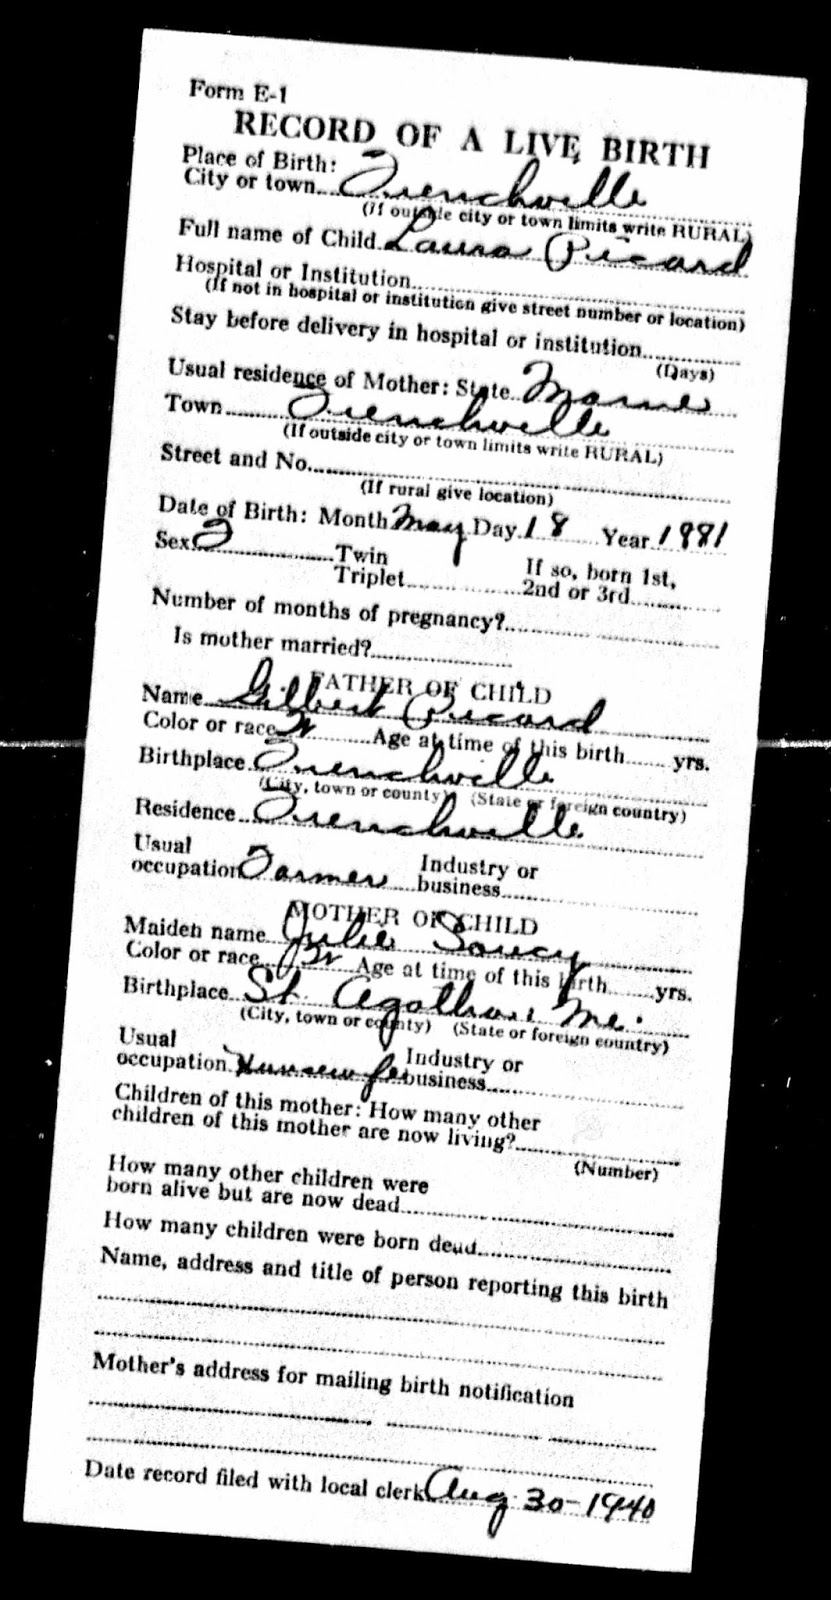 Form E-1
RECORD OF A LIVE BIRTH
Place of Birth:
City or town Frenchville
(If outside city or town limits write RURAL)
Full name of Child Laura Picard
Hospital or Institution
(If not in hospital or institution give street number or location)
Stay before delivery in hospital or institution
(Days)
Usual residence of Mother: State Maine
Town Frenchville
(If outside city or town limits write RURAL)
Street and No.
(If rural give location)
Date of Birth: Month May Day 18 Year 1881
Sex F Twin If so, born 1st,
Triplet 2nd or 3rd
Number of months of pregnancy?
Is mother married?
FATHER OF CHILD
Name Gilbert Picard
Color or race W Age at time of this birth yrs.
Birthplace Frenchville
(City, town or county) (State or foreign country)
Residence Frenchville
Usual Industry or
occupation Farmer business
MOTHER OF CHILD
Maiden name Julie Soucy
Color or race W Age at time of this birth yrs.
Birthplace St. Agatha Me.
(City, town or county) (State or foreign country)
Usual Industry or
occupation Housewife business
Children of this mother: How many other
children of this mother are now living?
(Number)
How many other children were
born alive but are now dead
How many children were born dead
Name, address and title of person reporting this birth
Mother's address for mailing birth notification
Date record filed with local clerk Aug 30-1940